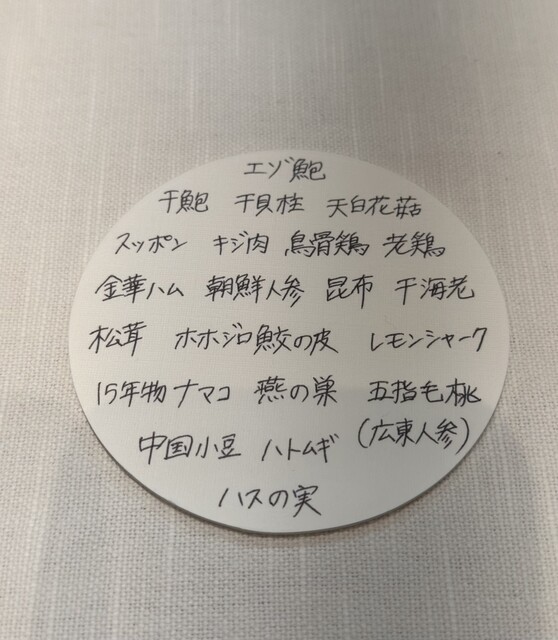 エゾ鮑
干鮑 干貝柱 天白花菇
スッポン キジ肉 烏骨鶏 老鶏
金華ハム 朝鮮人参 昆布 干海老
松茸 ホホジロ鮫の皮 レモンシャーク
15年物ナマコ 燕の巣 五指毛桃
中国小豆 ハトムギ (広東人参)
ハスの実